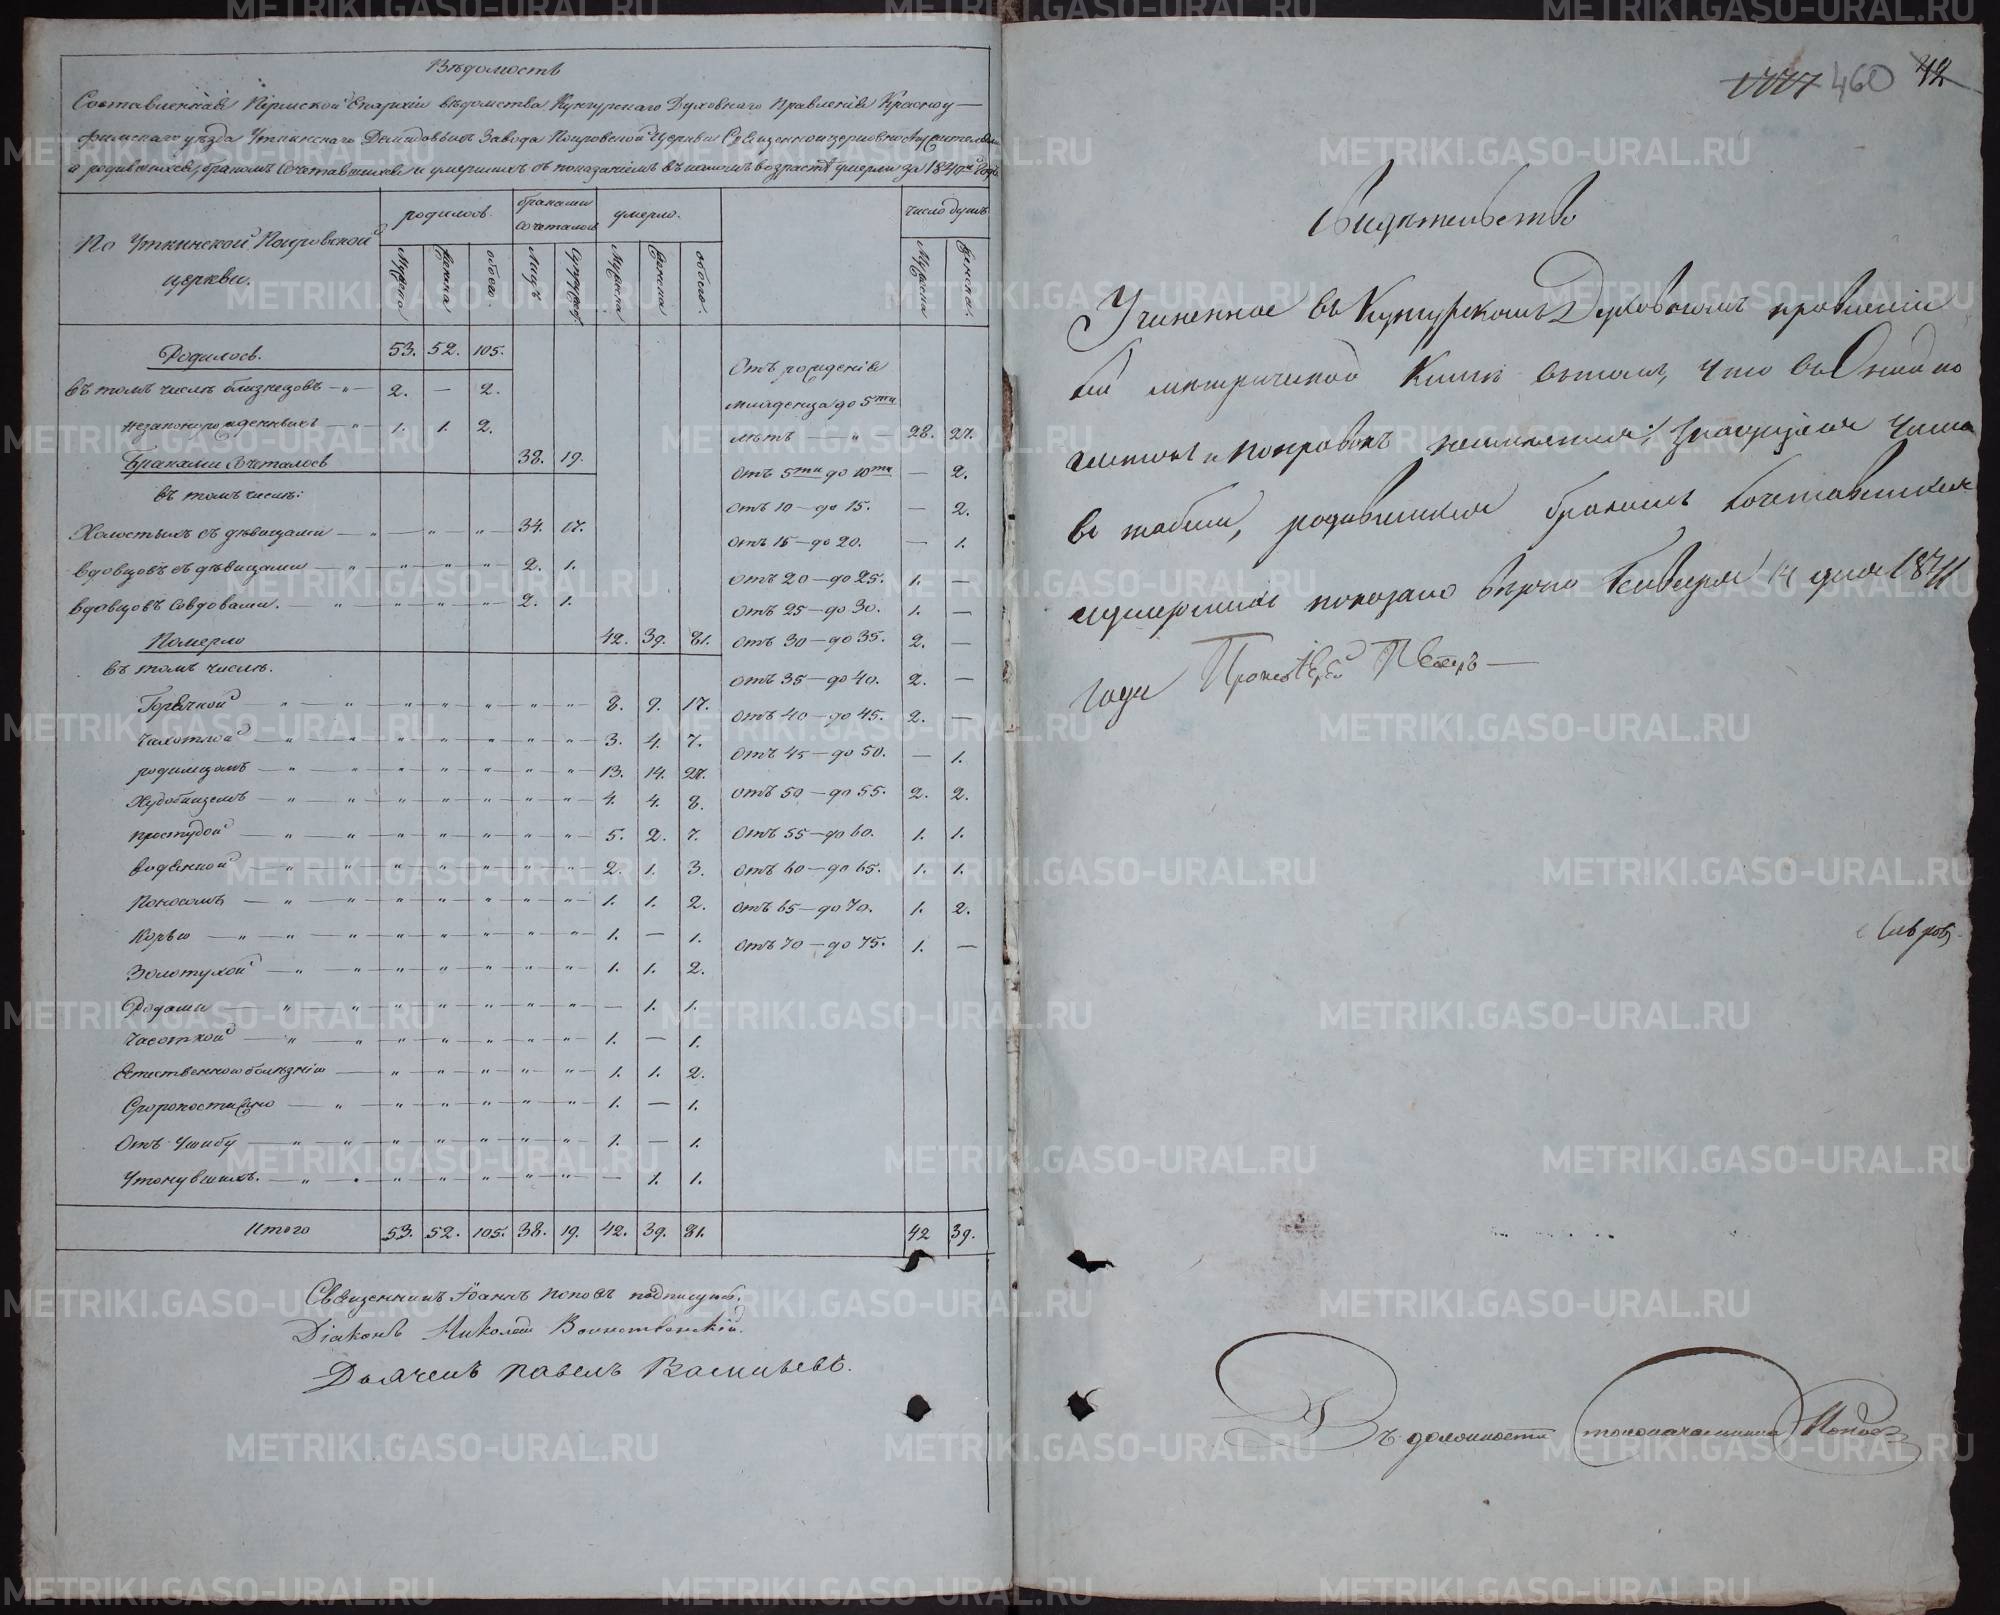 Вѣдомость
Составленная Пермской Епархіи вѣдомства Кунгурскаго Духовнаго Правленія Красноу-
фимскаго уѣзда Уткинскаго Демидовыхъ Завода Покровской Церкви Священноцерковнослужителями
о родившихся, бракомъ сочетавшихся и умершихъ съ показаніемъ въ какомъ возрастѣ умерли за 1840й Годъ
По Уткинской Покровской церкви.
родилось.
браками сочеталось
умерло.
число душъ
Мужска
Женска
обоего.
Лицъ
Супружеств.
Мужска
Женска
обоего.
Мужска
Женска.
Родилось. 53. 52. 105.
въ томъ числѣ близнецовъ 2. — 2.
незаконорожденныхъ 1. 1. 2.
Браками Сочеталось 38. 19.
въ томъ числѣ:
Холостыхъ съ дѣвицами 34. 17.
вдовцовъ съ дѣвицами 2. 1.
вдовцовъ совдовами. 2. 1.
Померло 42. 39. 81.
въ томъ числѣ.
Горячкой 8. 9. 17.
Чахоткой 3. 4. 7.
родимцомъ 13. 14. 27.
Худобищемъ 4. 4. 8.
простудой 5. 2. 7.
водяной 2. 1. 3.
Поносомъ 1. 1. 2.
Корью 1. — 1.
Золотухой 1. 1. 2.
Родами — 1. 1.
Часоткой 1. — 1.
Естественною болѣзнію 1. 1. 2.
Скоропостижно 1. — 1.
Отъ Ушибу 1. — 1.
Утонувшихъ. — 1. 1.
Отъ рожденія
младенца до 5ти
лѣтъ 28. 27.
Отъ 5ти до 10ти — 2.
Отъ 10 — до 15. — 2.
Отъ 15 — до 20. — 1.
Отъ 20 — до 25. 1. —
Отъ 25 — до 30. 1. —
Отъ 30 — до 35. 2. —
Отъ 35 — до 40. 2. —
Отъ 40 — до 45. 2. —
Отъ 45 — до 50. — 1.
Отъ 50 — до 55. 2. 2.
Отъ 55 — до 60. 1. 1.
Отъ 60 — до 65. 1. 1.
Отъ 65 — до 70. 1. 2.
Отъ 70 — до 75. 1. —
Итого 53. 52. 105. 38. 19. 42. 39. 81. 42 39.
Священникъ Іоаннъ Поповъ подписуюсь.
Діаконъ Николай Воинственскій.
Дьячекъ Павелъ Васильевъ.
460 42
Свидѣтельство
Учиненное въ Кунгурскомъ Духовномъ правленіи
сей метрической книги въ томъ, что въ Оной по
и поправокъ неимеется; значущіяся Числа
въ табели, родившихся бракомъ сочетавшихся
иумершихъ показано вѣрно Генваря 14 дня 1841
года Протоіерей Петръ —
Словцовъ
Въ должности столоначальника Поповъ
METRIKI.GASO-URAL.RU